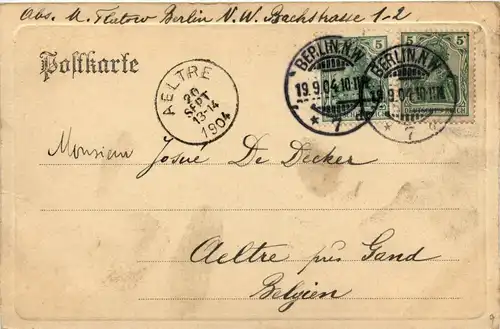 Abs. M. Flatow Berlin N.W. Bachstrasse 1-2
Postkarte
AELTRE
20
SEPT
13-14
1904
BERLIN, N.W.
19.9.04.10-11N.
* 7
BERLIN, N.W.
19.9.04.10-11N.
* 7 d
5
5
Monsieur Josué De Decker
Aeltre près Gand
Belgien
9